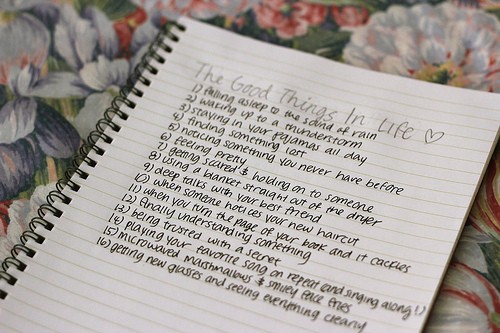 The Good Things In Life ♡
1) falling asleep to the sound of rain
2) waking up to a thunderstorm
3) staying in your pajamas all day
4) finding something lost
5) noticing something you never have before
6) feeling pretty
7) getting scared & holding on to someone
8) using a blanket straight out of the dryer
9) deep talks with your best friend
10) when someone notices your new haircut
11) when you turn the page of your book and it crackles
12) finally understanding something
13) being trusted with a secret
14) playing your favorite song on repeat (and singing along!)
15) microwaved marshmallows & smiley face fries
16) getting new glasses and seeing everything clearly